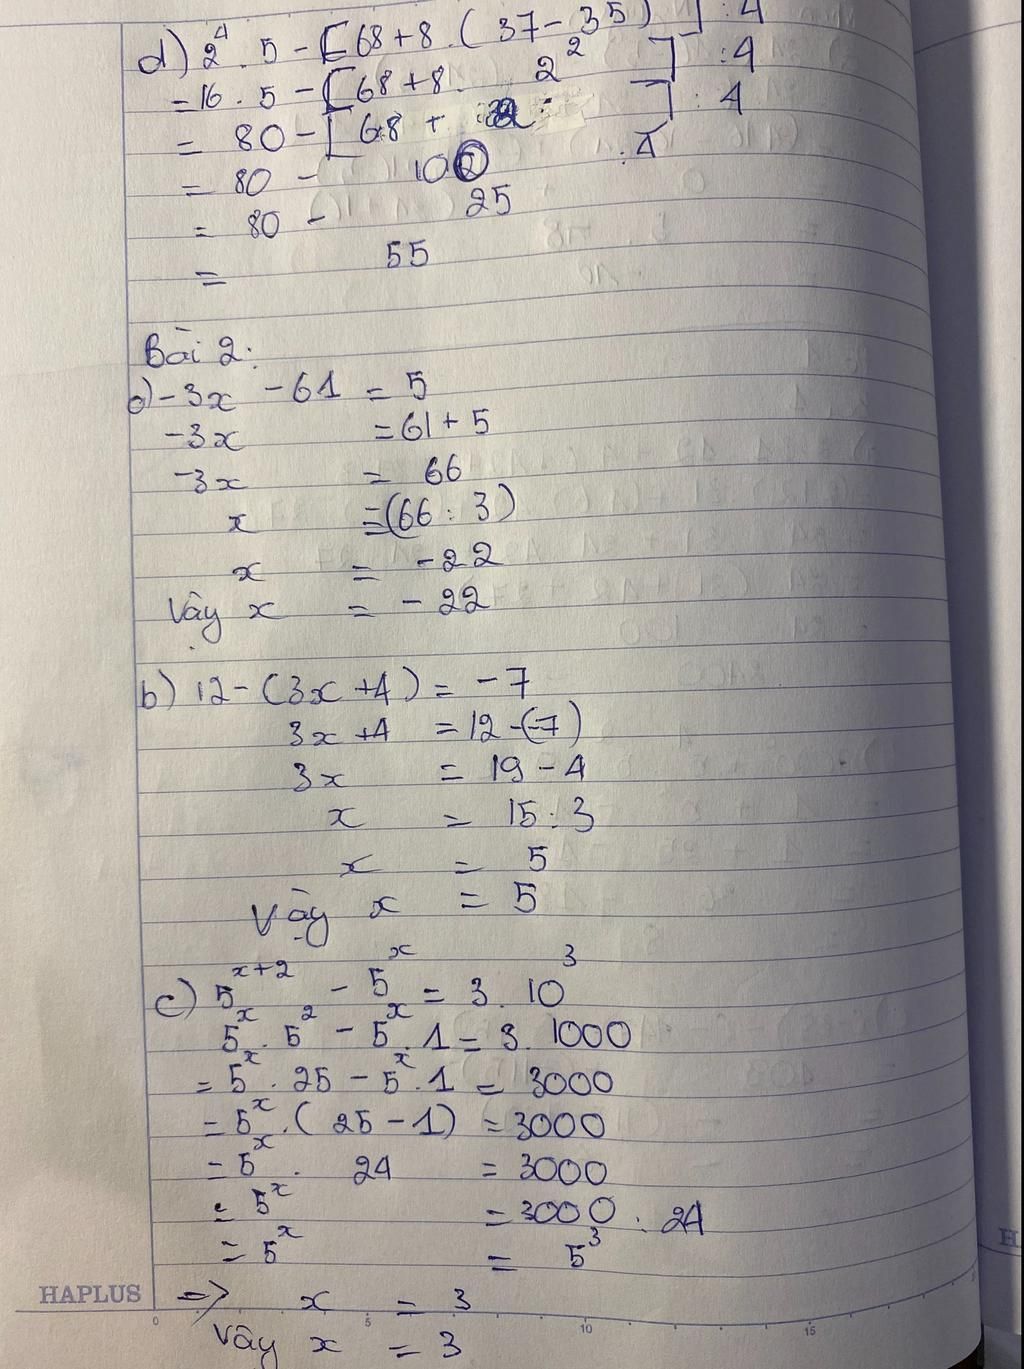 d) 2⁴ . 5 - [68 + 8 . (37 - 35)²] : 4
= 16 . 5 - [68 + 8 . 2²] : 4
= 80 - [68 + 32] : 4
= 80 - 100 : 4
= 80 - 25
= 55
Bài 2:
a) -3x - 61 = 5
-3x = 61 + 5
-3x = 66
x = (66 : 3)
x = -22
Vậy x = -22
b) 12 - (3x + 4) = -7
3x + 4 = 12 - (-7)
3x = 19 - 4
x = 15 : 3
x = 5
Vậy x = 5
c) 5ˣ⁺² - 5ˣ = 3 . 10³
5ˣ . 5² - 5ˣ . 1 = 3 . 1000
= 5ˣ . 25 - 5ˣ . 1 = 3000
= 5ˣ . (25 - 1) = 3000
= 5ˣ . 24 = 3000
= 5ˣ = 3000 : 24
= 5ˣ = 5³
HAPLUS
=> x = 3
0 5 10 15
Vậy x = 3